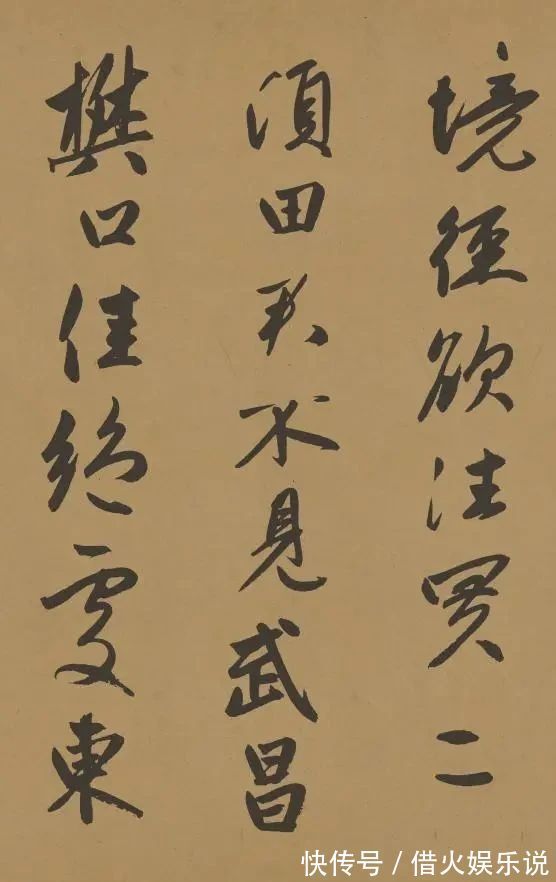 境徑欲往買二
頃田君不見武昌
樊口佳絶處東
快传号/借火娱乐说